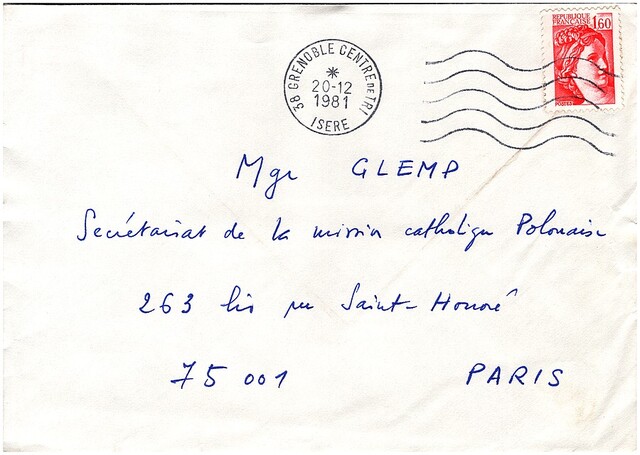 REPUBLIQUE
FRANÇAISE 1,60
POSTES
38 GRENOBLE CENTRE DE TRI
20-12
1981
ISERE
Mgr GLEMP
Secrétariat de la mission catholique Polonaise
263 bis rue Saint-Honoré
75 001 PARIS